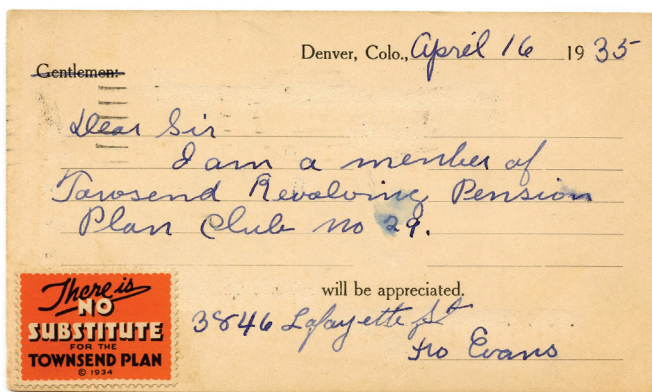 Denver, Colo., April 16 1935
Gentlemen:
Dear Sir
I am a member of
Towsend Revolving Pension
Plan Club no 29.
will be appreciated.
3846 Lafayette St
Evans
There is
NO
SUBSTITUTE
FOR THE
TOWNSEND PLAN
© 1934